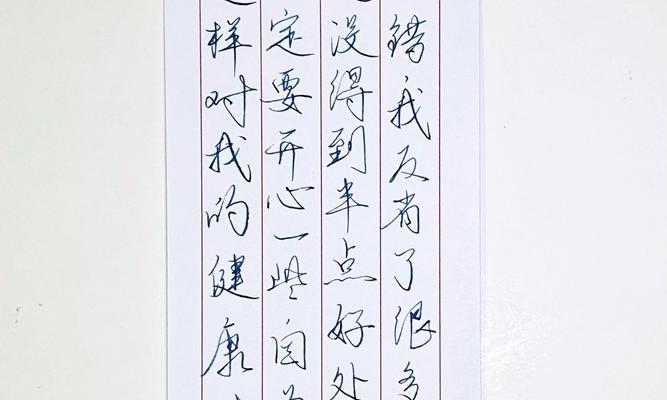 错我反省了很多
没得到半点好处
定要开心一些自
样对我的健康